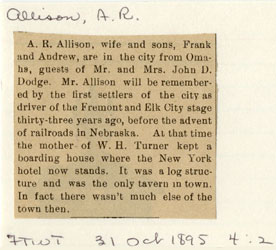 Allison, A. R.
A. R. Allison, wife and sons, Frank
and Andrew, are in the city from Oma-
ha, guests of Mr. and Mrs. John D.
Dodge. Mr. Allison will be remember-
ed by the first settlers of the city as
driver of the Fremont and Elk City stage
thirty-three years ago, before the advent
of railroads in Nebraska. At that time
the mother of W. H. Turner kept a
boarding house where the New York
hotel now stands. It was a log struc-
ture and was the only tavern in town.
In fact there wasn't much else of the
town then.
FTWT 31 Oct 1895 4:2